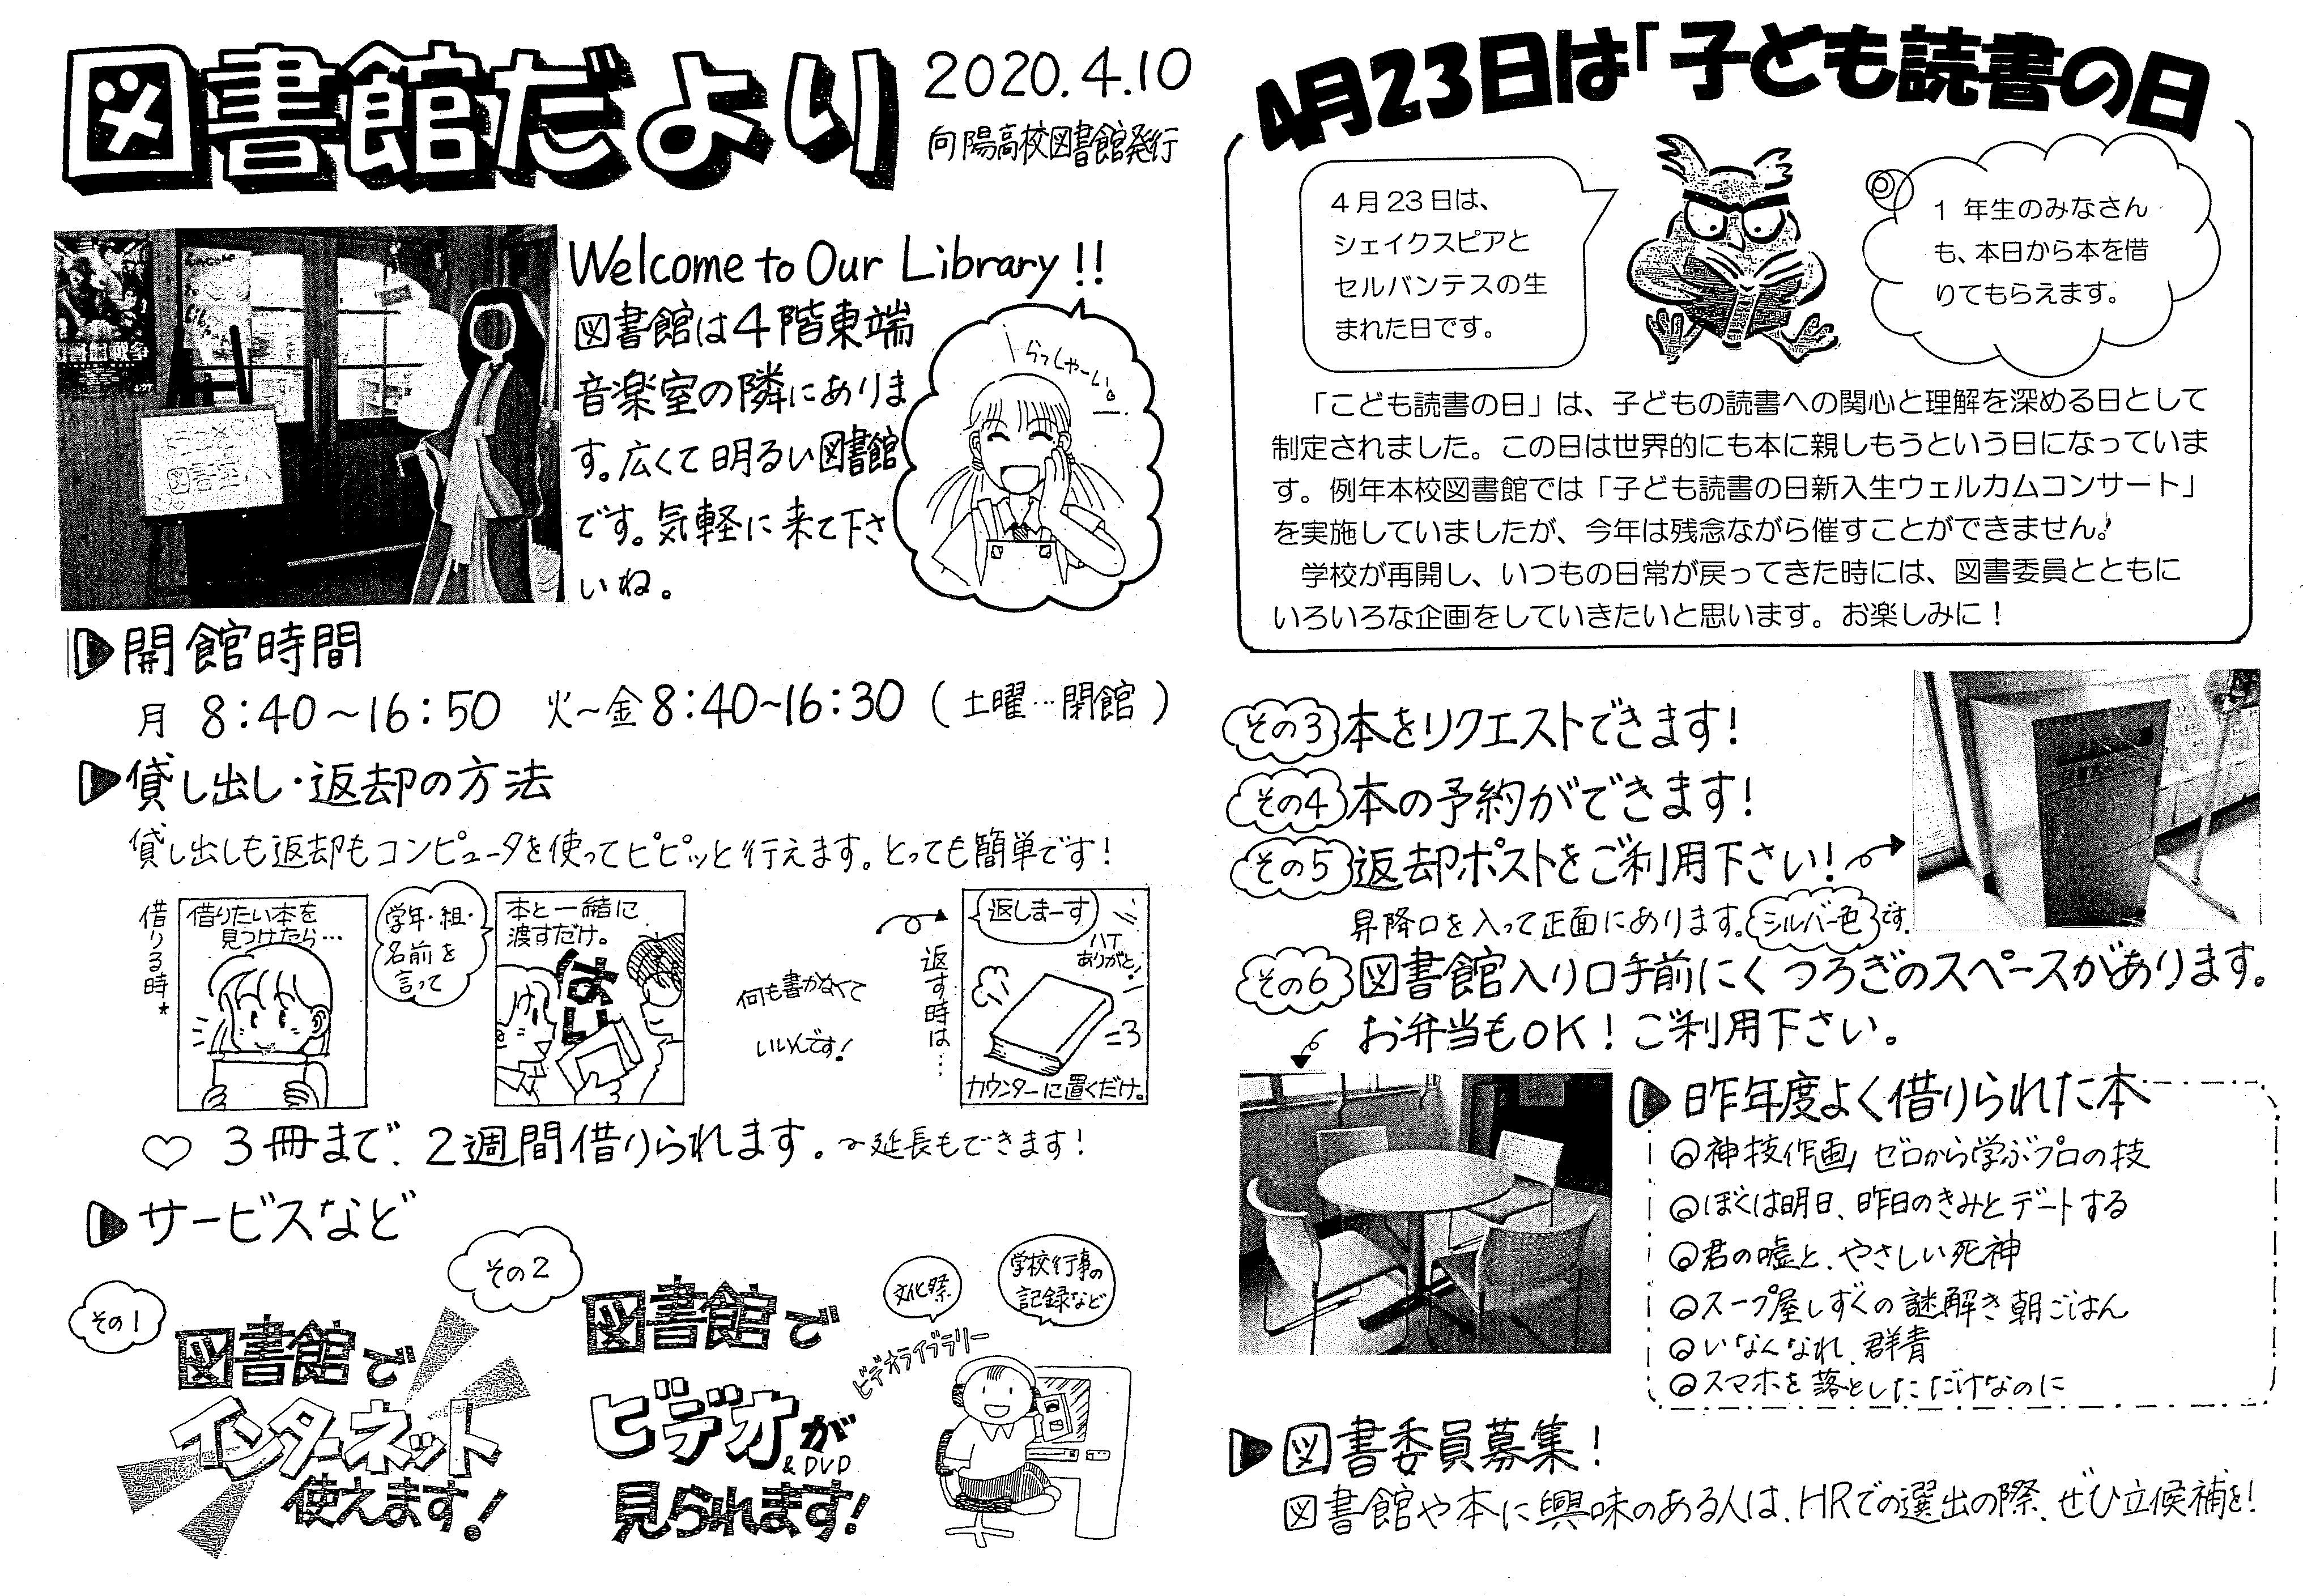 図書館だより
2020.4.10
向陽高校図書館発行
図書館戦争
ようこそ
図書室へ
Welcome to Our Library!!
図書館は4階東端
音楽室の隣にありま
す。広くて明るい図書館
です。気軽に来て下さ
いね。
いらっしゃーい。
開館時間
月 8:40~16:50 火~金8:40~16:30 (土曜…閉館)
貸し出し・返却の方法
貸し出しも返却もコンピュータを使ってピピッと行えます。とっても簡単です!
借りる時*
借りたい本を
見つけたら…
学年・組・
名前を
言って
本と一緒に
渡すだけ。
はい
何も書かなくて
いいんです!
返す時は…
返しまーす
ハイ
ありがと!
カウンターに置くだけ。
♡ 3冊まで、2週間借りられます。~延長もできます!
サービスなど
その1
図書館で
インターネット
使えます!
その2
図書館で
ビデオが
&DVD
見られます!
文化祭
学校行事の
記録など
ビデオライブラリー
4月23日は「子ども読書の日
4月23日は、
シェイクスピアと
セルバンテスの生
まれた日です。
1年生のみなさん
も、本日から本を借
りてもらえます。
「こども読書の日」は、子どもの読書への関心と理解を深める日として
制定されました。この日は世界的にも本に親しもうという日になっていま
す。例年本校図書館では「子ども読書の日新入生ウェルカムコンサート」
を実施していましたが、今年は残念ながら催すことができません。
学校が再開し、いつもの日常が戻ってきた時には、図書委員とともに
いろいろな企画をしていきたいと思います。お楽しみに!
その3 本をリクエストできます!
その4 本の予約ができます!
その5 返却ポストをご利用下さい!
昇降口を入って正面にあります。シルバー色です。
その6 図書館入り口手前にくつろぎのスペースがあります。
お弁当もOK!ご利用下さい。
昨年度よく借りられた本
神技作画 ゼロから学ぶプロの技
ぼくは明日、昨日のきみとデートする
君の嘘と、やさしい死神
スープ屋しずくの謎解き朝ごはん
いなくなれ、群青
スマホを落としただけなのに
図書委員募集!
図書館や本に興味のある人は、HRでの選出の際、ぜひ立候補を!